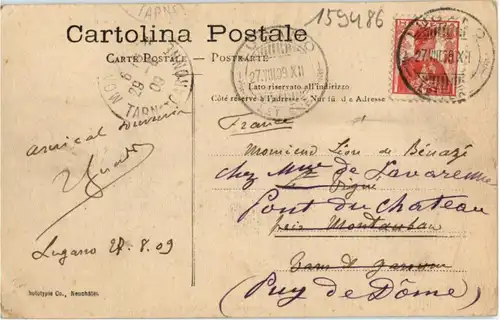 159486
Cartolina Postale
CARTE POSTALE — POSTKARTE
Lato riservato all'indirizzo
Côté réservé à l'adresse - Nur für d e Adresse
TARN
LUGANO
27.VIII.09.XII
29
8
09
TARN
France
amical souvenir
Monsieur Léon de Bénazé
chez Mme de Lavarenne
Le Vigné
Pont du Château
près Montauban
Puy de Dôme
Lugano 27.8.09
Phototypie Co., Neuchâtel.